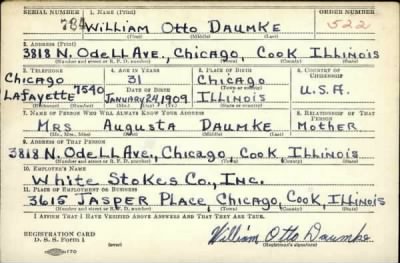 SERIAL NUMBER 1. NAME (Print) ORDER NUMBER
784 William Otto Daumke 522
2. ADDRESS (Print)
3818 N. Odell Ave., Chicago, Cook Illinois
(Number and street or R. F. D. number) (Town) (County) (State)
3. TELEPHONE 4. AGE IN YEARS 5. PLACE OF BIRTH 6. COUNTRY OF CITIZENSHIP
Chicago 31 Chicago
DATE OF BIRTH (Town or county)
Lafayette 7540 January 24, 1909 Illinois U.S.A.
(Exchange) (No.) (Mo.) (Day) (Yr.) (State or country)
7. NAME OF PERSON WHO WILL ALWAYS KNOW YOUR ADDRESS 8. RELATIONSHIP OF THAT PERSON
Mrs Augusta Daumke Mother
(Mr., Mrs., Miss) (First) (Middle) (Last)
9. ADDRESS OF THAT PERSON
3818 N. Odell Ave., Chicago, Cook Illinois
(Number and street or R. F. D. number) (Town) (County) (State)
10. EMPLOYER'S NAME
White Stokes Co., Inc.
11. PLACE OF EMPLOYMENT OR BUSINESS
3615 Jasper Place, Chicago, Cook, Illinois
(Number and street or R. F. D. number) (Town) (County) (State)
I AFFIRM THAT I HAVE VERIFIED ABOVE ANSWERS AND THAT THEY ARE TRUE.
REGISTRATION CARD
D. S. S. Form 1 William Otto Daumke
(Registrant's signature)